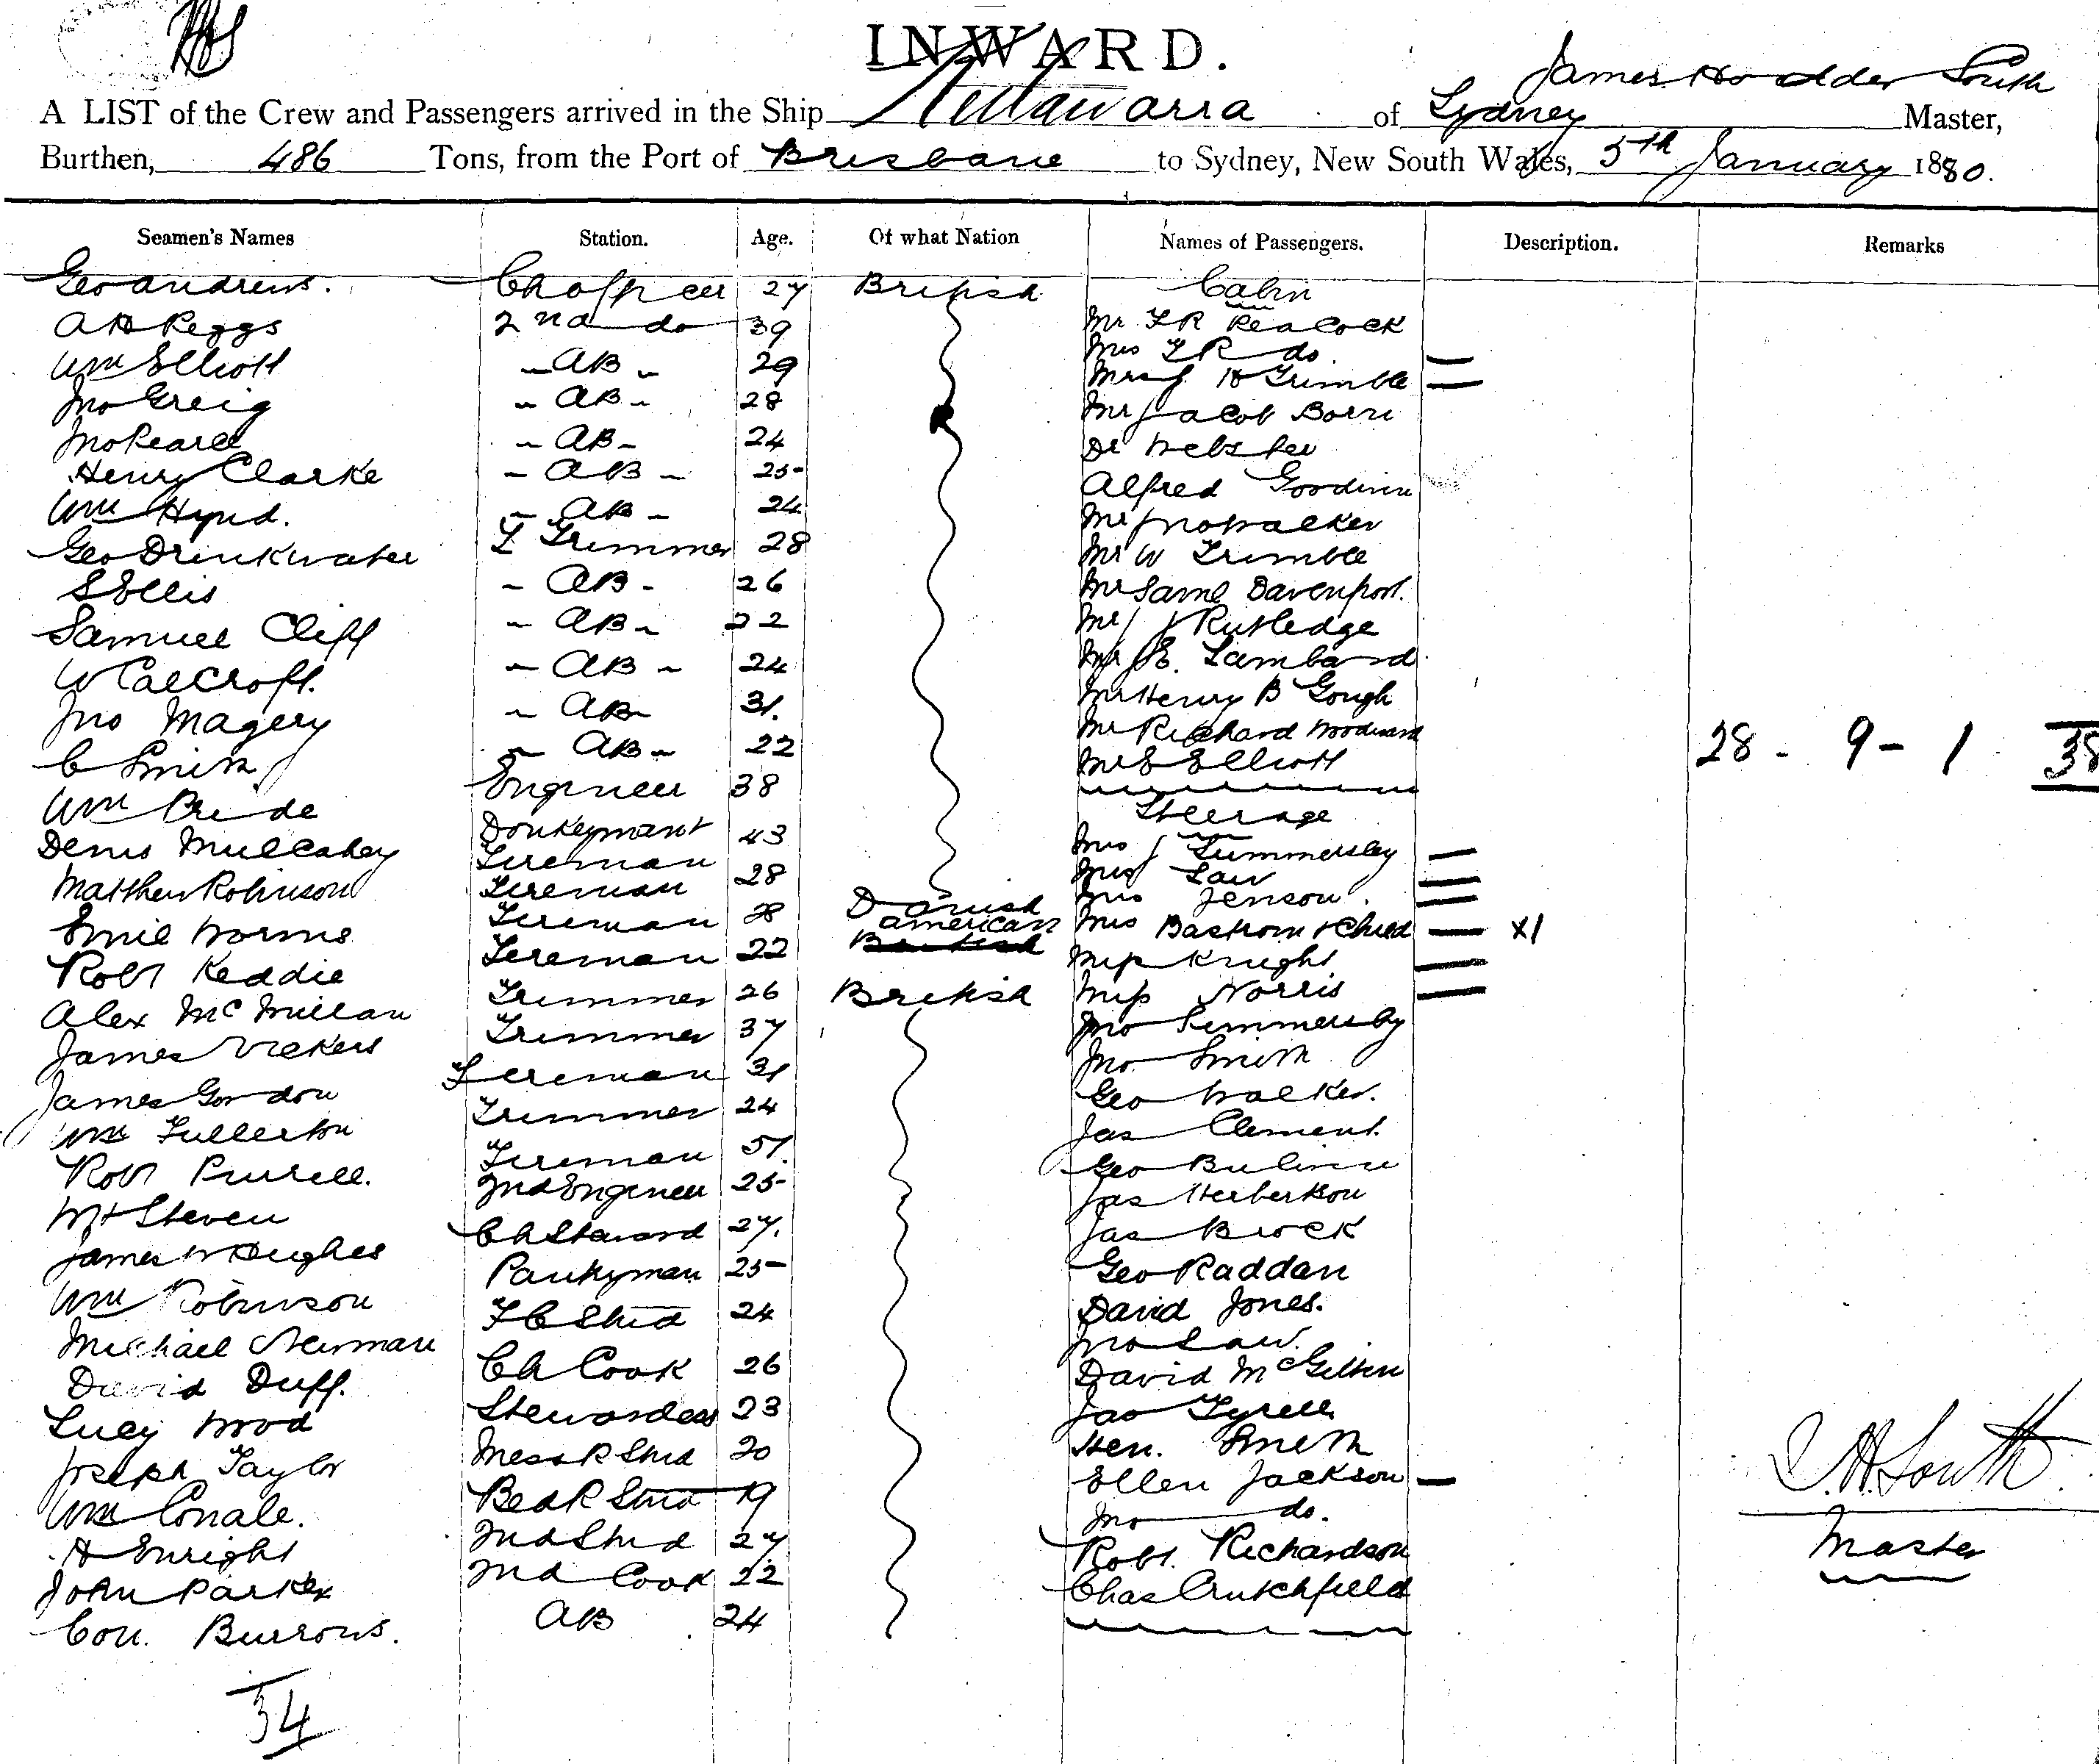 INWARD.
James Hodder South
A LIST of the Crew and Passengers arrived in the Ship Kellawarra of Sydney Master,
Burthen, 486 Tons, from the Port of Brisbane to Sydney, New South Wales, 5th January 1880.
Seamen's Names Station. Age. Of what Nation Names of Passengers. Description. Remarks
Geo Andrews. Ch Officer 27 British Cabin
A H Peggs 2nd do 39 Mr F R Peacock
Wm Elliott AB 29 Mrs F R do.
Jno Greig AB 28 Mrs J H Trimble
Jno Pearce AB 24 Mr Jacob
Henry Clarke AB 25 Dr Webster
Wm Hynd. AB 24 Alfred Goodwin
Geo Drinkwater Trimmer 28 Mr Jno Walker
S Ellis AB 26 Mr W Trimble
Samuel Cliff AB 22 Mr Saml Davenport.
W Calcroft. AB 24 Mr J Rutledge
Jno Magery AB 31. Mr E. Lambard
C Smith AB 22 Mr Henry B Gough
Wm Bride Engineer 38 Mr Richard Woodward
Denis Mulcahey Donkeyman 43 Mr S Elliott
28 - 9 - 1 38
Steerage
Matthew Robinson Fireman 28 Mrs J Summersley
Fireman Mrs Law
Emil Worms Fireman 28 Danish Mrs Jenson.
Robt Keddie Fireman 22 American Mrs Bastrom & Child X1
British
Miss Knight
Alex McMillan Trimmer 26 British Miss Norris
James Vickers Trimmer 37 Jno Summersby
James Gordon Fireman 31 Jno Smith
Wm Fullerton Trimmer 24 Geo Walker.
Robt Purcell. Fireman 51. Jas Clement.
W H Steven 2nd Engineer 25 Geo
James W Hughes Ch Steward 27. Jas Herbertson
Wm Robinson Pantryman 25 Jas Brock
Michael Newman F C Stwd 24 Geo Raddan
David Duff. Ch Cook 26 David Jones.
Lucy Wood Stewardess 23 Jno Law.
Joseph Taylor Mess R Stwd 20 David
Wm Conale. Bed R Stwd 19 Jas Tyrell
H Enright 2nd Stwd 27 Hen. Smith
John Parker 2nd Cook 22 Ellen Jackson
Con. Burrows. AB 24 Jno do.
Robt. Richardson
Chas Crutchfield
J. H. South
Master
34